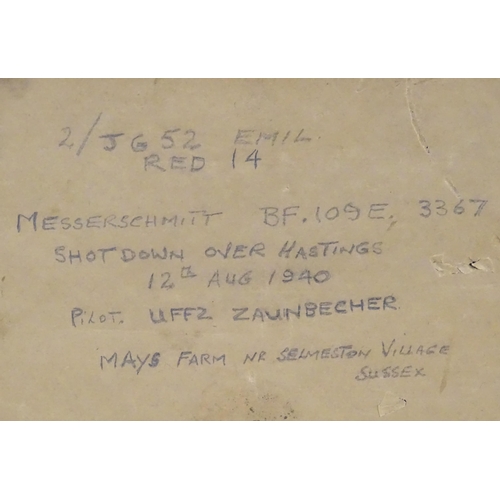 2/JG52 EMIL.
RED 14
MESSERSCHMITT BF.109E, 3367
SHOTDOWN OVER HASTINGS
12TH AUG 1940
PILOT. UFFZ ZAUNBECHER.
MAYS FARM NR SELMESTON VILLAGE
SUSSEX